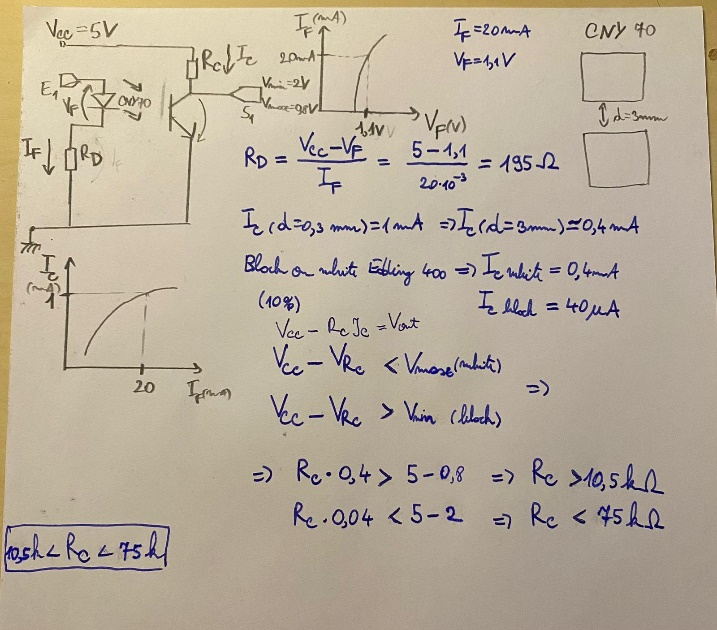 Vcc = 5V
Rc ↓ Ic
E1
VF
CNY70
Vmin=2V
Vmax=0,8V
S1
IF ↓ RD
IF (mA)
20mA
1,1V
VF(V)
IF = 20mA
VF = 1,1V
CNY 70
d = 3mm
RD = (Vcc − VF) / IF = (5 − 1,1) / (20·10⁻³) = 195 Ω
Ic (d=0,3 mm) = 1 mA ⇒ Ic (d = 3mm) ≃ 0,4 mA
Black on white Edding 400 ⇒ Ic white = 0,4mA
(10%)
Ic black = 40 µA
Vcc − Rc Ic = Vout
Vcc − VRc < Vmax (white)
⇒
Vcc − VRc > Vmin (black)
⇒ Rc · 0,4 > 5 − 0,8 ⇒ Rc > 10,5 kΩ
Rc · 0,04 < 5 − 2 ⇒ Rc < 75 kΩ
10,5k < Rc < 75k
Ic
(mA)
1
20
IF(mA)